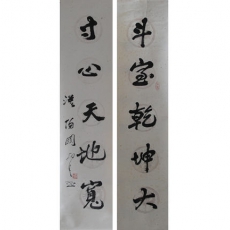 斗室乾坤大
寸心天地寬